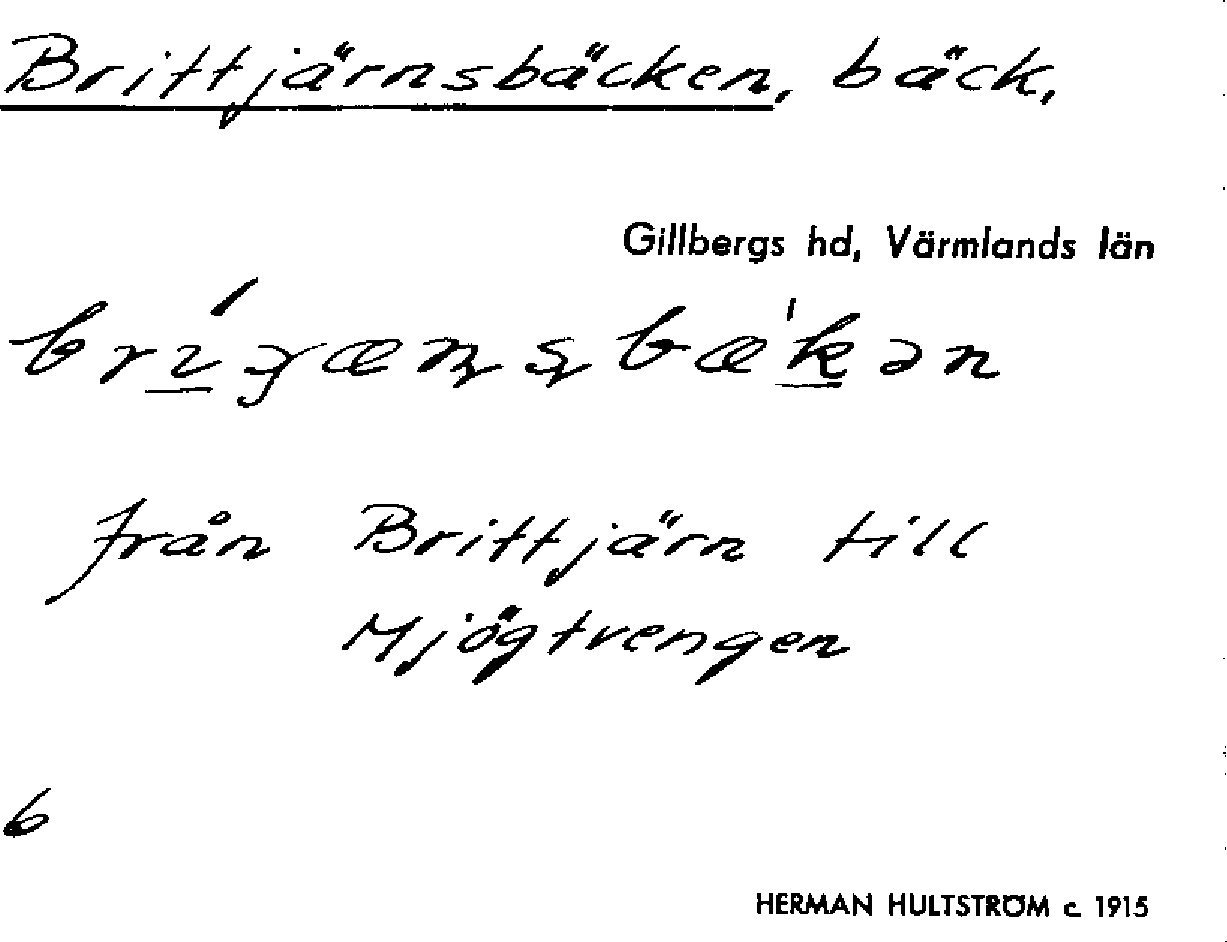 Brittjärnsbäcken, bäck,
Gillbergs hd, Värmlands län
från Brittjärn till
Mjögtvengen
6
HERMAN HULTSTRÖM c. 1915